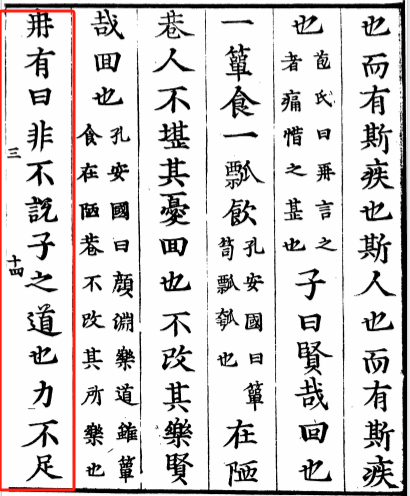 也而有斯疾也斯人也而有斯疾
也
苞氏曰再言之
者痛惜之甚也
子曰賢哉回也
一簞食一瓢飲
孔安國曰簞
笥瓢瓠也
在陋
巷人不堪其憂回也不改其樂賢
哉回也
孔安國曰顏淵樂道雖簞
食在陋巷不改其所樂也
冉有曰非不説子之道也力不足
三
十四